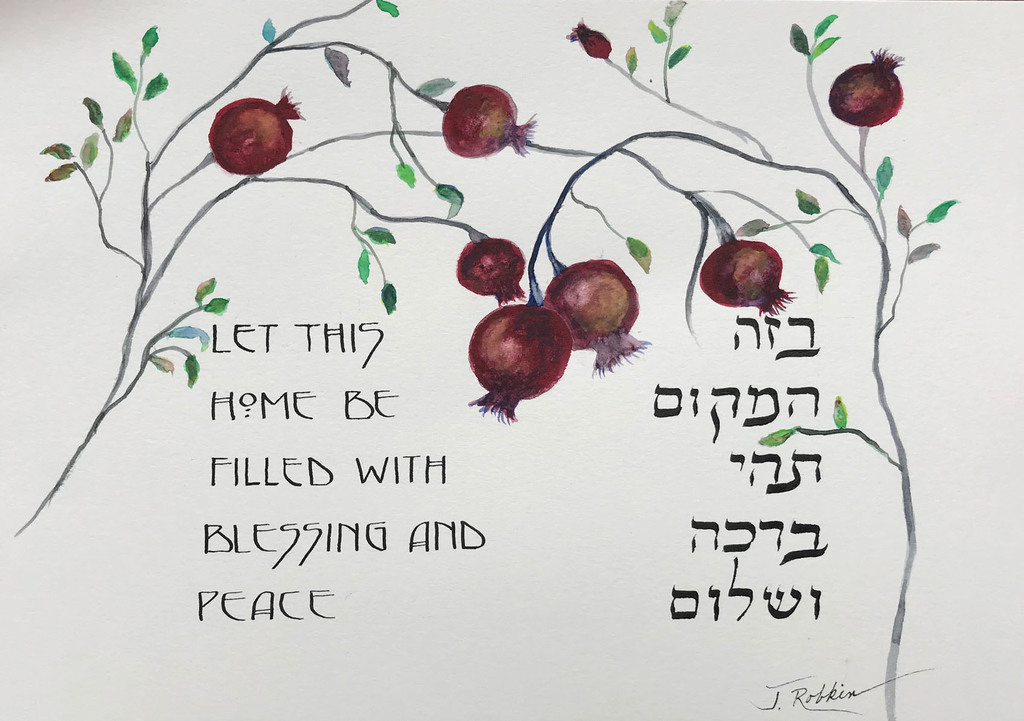 LET THIS
HOME BE
FILLED WITH
BLESSING AND
PEACE
בזה
המקום
תהי
ברכה
ושלום
J. Robkin